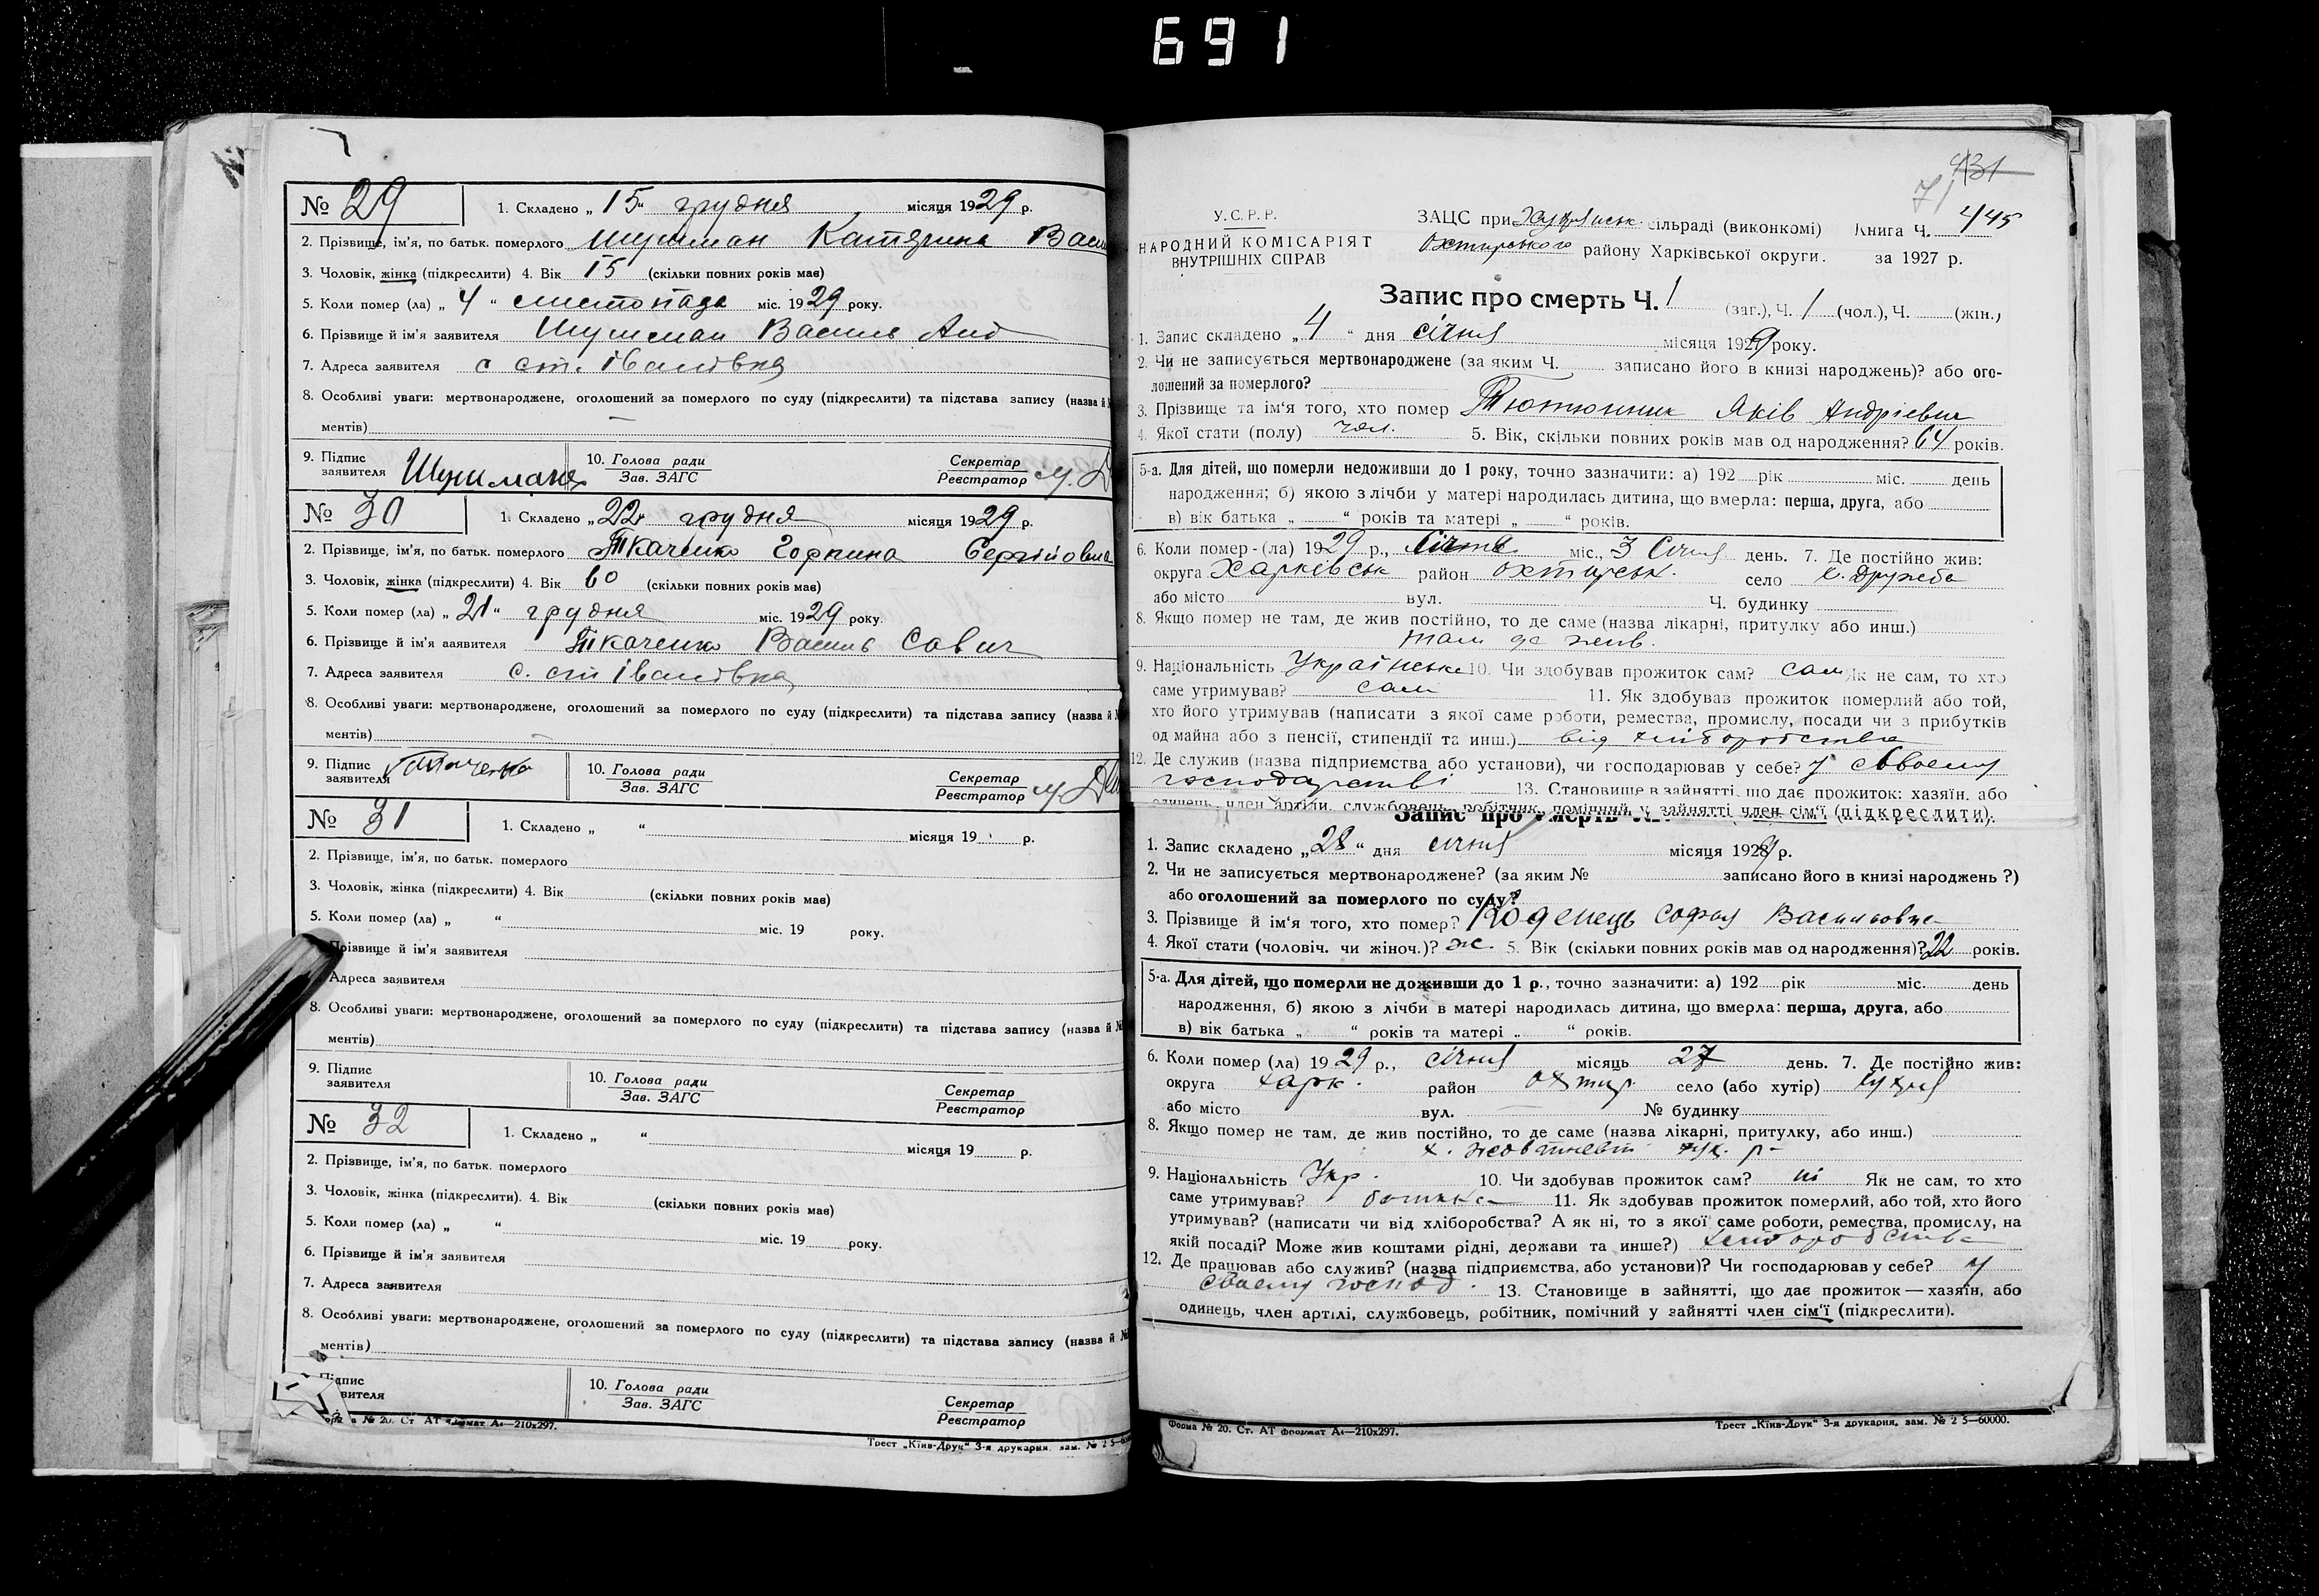 691
№ 29
1. Складено „15“ грудня місяця 1929 р.
2. Прізвище, ім'я, по батьк. померлого Шушман Катерина Васи
3. Чоловік, жінка (підкреслити) 4. Вік 15 (скільки повних років має)
5. Коли помер (ла) „4“ листопада міс. 1929 року.
6. Прізвище й ім'я заявителя Шушман Василь Анд
7. Адреса заявителя с ст. Іванівка
8. Особливі уваги: мертвонароджене, оголошений за померлого по суду (підкреслити) та підстава запису (назва й
ментів)
9. Підпис заявителя
10. Голова ради
Зав. ЗАГС
Секретар
Реєстратор
№ 30
1. Складено „22“ грудня місяця 1929 р.
2. Прізвище, ім'я, по батьк. померлого Ткаченко Горпина Сергійовна
3. Чоловік, жінка (підкреслити) 4. Вік 60 (скільки повних років має)
5. Коли помер (ла) „21“ грудня міс. 1929 року.
6. Прізвище й ім'я заявителя Ткаченко Василь Савич
7. Адреса заявителя с. ст Іванівка
8. Особливі уваги: мертвонароджене, оголошений за померлого по суду (підкреслити) та підстава запису (назва й №
ментів)
9. Підпис заявителя Ткаченко
10. Голова ради
Зав. ЗАГС
Секретар
Реєстратор
№ 31
1. Складено „ “ місяця 19 р.
2. Прізвище, ім'я, по батьк. померлого
3. Чоловік, жінка (підкреслити) 4. Вік (скільки повних років має)
5. Коли помер (ла) „ “ міс. 19 року.
Прізвище й ім'я заявителя
Адреса заявителя
8. Особливі уваги: мертвонароджене, оголошений за померлого по суду (підкреслити) та підстава запису (назва й №
ментів)
9. Підпис заявителя
10. Голова ради
Зав. ЗАГС
Секретар
Реєстратор
№ 32
1. Складено „ “ місяця 19 р.
2. Прізвище, ім'я, по батьк. померлого
3. Чоловік, жінка (підкреслити). 4. Вік (скільки повних років має)
5. Коли помер (ла) „ “ міс. 19 року.
6. Прізвище й ім'я заявителя
7. Адреса заявителя
8. Особливі уваги: мертвонароджене, оголошений за померлого по суду (підкреслити) та підстава запису (назва й №
ментів)
Підпис
10. Голова ради
Зав. ЗАГС
Секретар
Реєстратор
№ 20. Ст АТ Формат А4—210х297.
Трест „Київ-Друк“ 3-я друкарня
431
71
У.С.Р.Р.
НАРОДНИЙ КОМІСАРІЯТ
ВНУТРІШНІХ СПРАВ
ЗАЦС при сільраді (виконкомі) Книга Ч. 445
Охтирського району Харківської округи. за 1927 р.
Запис про смерть Ч. 1 (заг.), Ч. 1 (чол.), Ч. (жін.)
1. Запис складено „4“ дня січня місяця 1929 року.
2. Чи не записується мертвонароджене (за яким Ч. записано його в книзі народжень)? або ого-
лошений за померлого?
3. Прізвище та ім'я того, хто помер Тютюнник Яків Андрієвич
4. Якої стати (полу) чол. 5. Вік, скільки повних років мав од народження? 64 років.
5-а. Для дітей, що померли недоживши до 1 року, точно зазначити: а) 192 рік міс. день
народження; б) якою з лічби у матері народилась дитина, що вмерла: перша, друга, або
в) вік батька „ “ років та матері „ “ років.
6. Коли помер-(ла) 1929 р., січня міс., 3 Січня день. 7. Де постійно жив:
округа Харківськ район охтирськ. село х. Дружба
або місто вул. Ч. будинку
8. Якщо помер не там, де жив постійно, то де саме (назва лікарні, притулку або инш.)
там де жив.
9. Національність Українське 10. Чи здобував прожиток сам? сам Як не сам, то хто
саме утримував? сам 11. Як здобував прожиток померлий або той,
хто його утримував (написати з якої саме роботи, ремества, промислу, посади чи з прибутків
од майна або з пенсії, стипендії та инш.) від хліборобства
12. Де служив (назва підприємства або установи), чи господарював у себе? У своєму
господарстві 13. Становище в зайнятті, що дає прожиток: хазяїн, або
одинець, член артіли, службовець, робітник, помічний у зайнятті член сім'ї (підкреслити).
Запис про смерть
1. Запис складено „28“ дня січня місяця 1929 р.
2. Чи не записується мертвонароджене? (за яким № записано його в книзі народжень?)
або оголошений за померлого по суду?
3. Прізвище й ім'я того, хто помер? Коденець Софія Васильовна
4. Якої стати (чоловіч. чи жіноч.)? ж. 5. Вік (скільки повних років мав од народження)? 22 років.
5-а. Для дітей, що померли не доживши до 1 р., точно зазначити: а) 192 рік міс. день
народження, б) якою з лічби в матері народилась дитина, що вмерла: перша, друга, або
в) вік батька „ “ років та матері „ “ років.
6. Коли помер (ла) 1929 р., січня місяць 27 день. 7. Де постійно жив:
округа харк. район охтир. село (або хутір)
або місто вул. № будинку
8. Якщо помер не там, де жив постійно, то де саме (назва лікарні, притулку, або инш.)
9. Національність Укр. 10. Чи здобував прожиток сам? ні Як не сам, то хто
саме утримував? 11. Як здобував прожиток померлий, або той, хто його
утримував? (написати чи від хліборобства? А як ні, то з якої саме роботи, ремества, промислу, на
якій посаді? Може жив коштами рідні, держави та инше?) хліборобства
12. Де працював або служив? (назва підприємства, або установи)? Чи господарював у себе? У
своєму господ. 13. Становище в зайнятті, що дає прожиток — хазяїн, або
одинець, член артілі, службовець, робітник, помічний у зайнятті член сім'ї (підкреслити).
Форма № 20. Ст. АТ формат А4—210х297.
Трест „Київ-Друк“ 3-я друкарня, зам. № 2 5—60000.